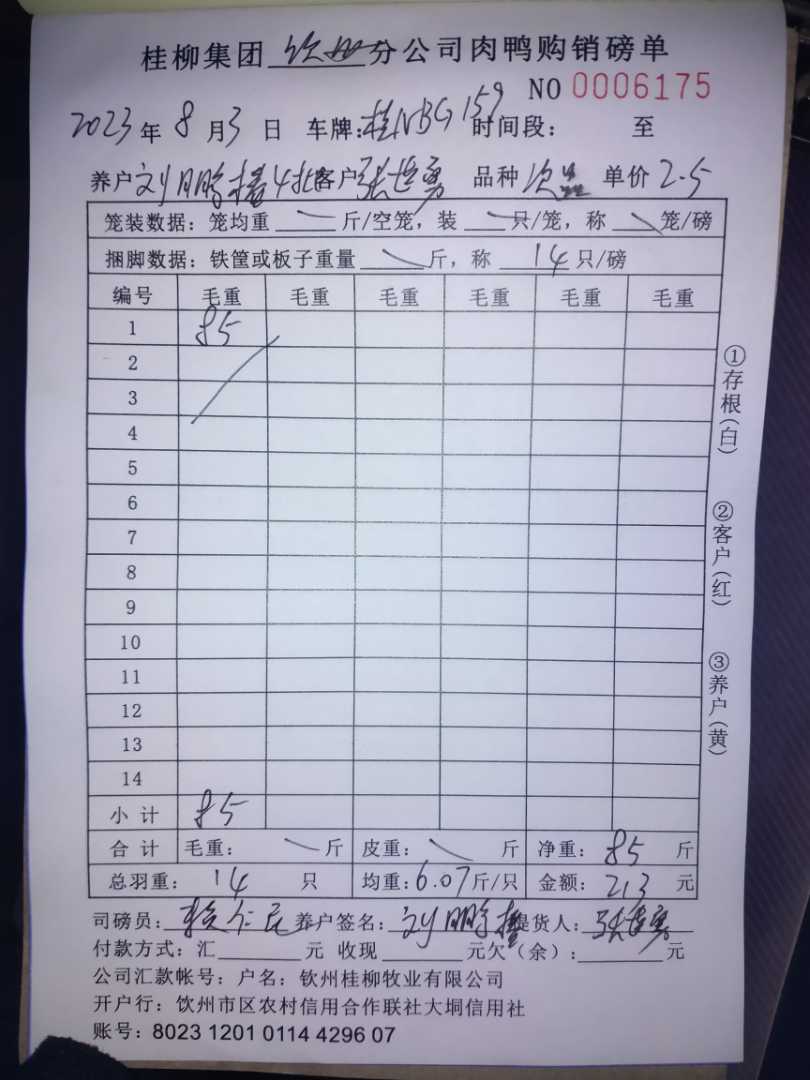 桂柳集团 钦州 分公司肉鸭购销磅单
NO 0006175
2023年 8月 3日 车牌:桂NBG159 时间段: 至
养户 刘明鹏 4批 客户 张 勇 品种 次品 单价 2.5
笼装数据: 笼均重 斤/空笼, 装 只/笼, 称 笼/磅
捆脚数据: 铁筐或板子重量 斤, 称 14 只/磅
编号 毛重 毛重 毛重 毛重 毛重 毛重
1 85
2
3
4
5
6
7
8
9
10
11
12
13
14
小 计 85
合 计 毛重: 斤 皮重: 斤 净重: 85 斤
总羽重: 14 只 均重: 6.07 斤/只 金额: 213 元
司磅员: 养户签名: 刘明鹏 提货人: 张 勇
付款方式: 汇 元 收现 元欠(余): 元
公司汇款帐号: 户名: 钦州桂柳牧业有限公司
开户行: 饮州市区农村信用合作联社大垌信用社
账号: 8023 1201 0114 4296 07
①存根(白)
②客户(红)
③养户(黄)